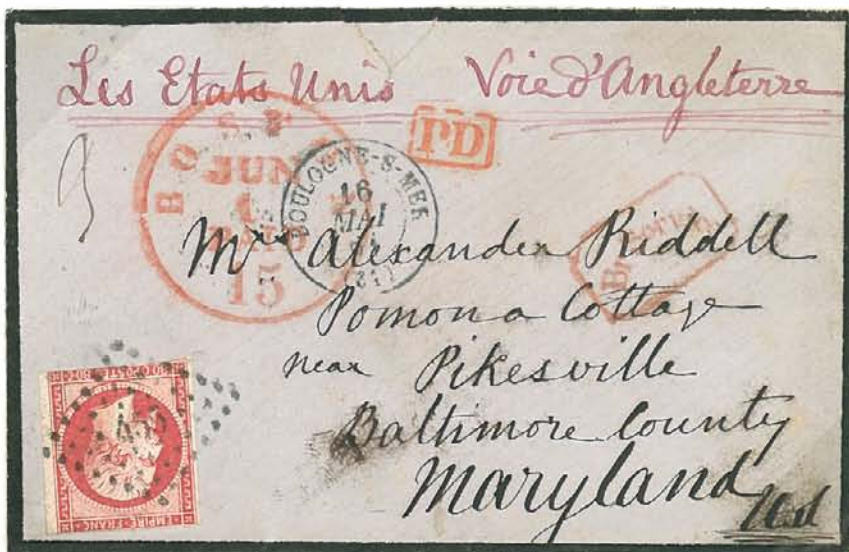 Les Etats Unis Voie d'Angleterre
PD
BOST
JUN
PAID
15
BOULOGNE-S-MER
16
MAI
Mrs Alexander Riddell
Pomona Cottage
near Pikesville
Baltimore County
Maryland
80 C POSTES 80 C
EMPIRE FRANC